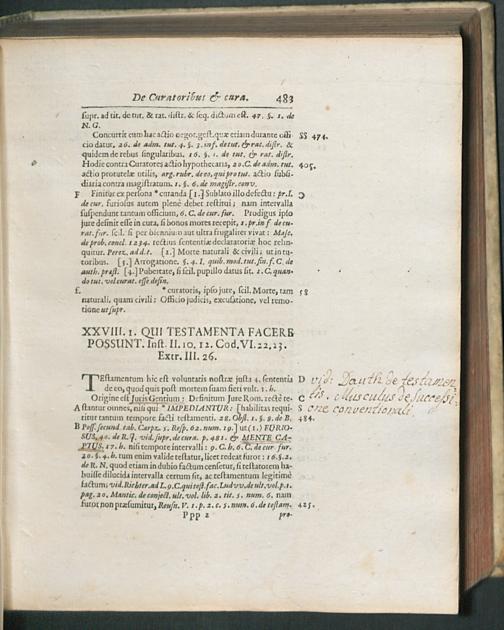 De Curatoribus & cura. 483
supr. ad tit. de tut. & rat. distr. & seq. dictum est. 47. §. 1. de
N. G.
Concurrit cum hac actio negot. gest. quæ etiam durante offi- SS 474.
cio datur, 26. de adm. tut. 4. §. 3. inf. de tut. & rat. distr. &
quidem de rebus singularibus. 16. §. 1. de tut. & rat. distr.
Hodie contra Curatores actio hypothecaria, 20. C. de adm. tut. 405.
actio protutelæ utilis, arg. rubr. de eo, qui pro tut. actio subsi-
diaria contra magistratum. 1. §. 6. de magistr. conv.
F Finitur ex persona * curanda [1.] Sublato illo defectu: pr. l.
de cur. furiosus autem plenè debet restitui; nam intervalla
suspendunt tantum officium, 6. C. de cur. fur. Prodigus ipso
jure desinit esse in cura, si bonos mores recepit, 1. pr. in f. de cu-
rat. fur. scil. si per biennium aut ultra frugaliter vivat: Masc.
de prob. concl. 1234. rectius sententiæ declaratoriæ hoc relin-
quitur. Perez. ad d. t. [2.] Morte naturali & civili: ut in tu-
toribus. [3.] Arrogatione. §. 4. I. quib. mod. tut. fin. f. C. de
auth. præst. [4.] Pubertate, si scil. pupillo datus sit. 1. C. quan-
do tut. vel curat. esse desin.
f. * curatoris, ipso jure, scil. Morte, tam 58
naturali, quam civili: Officio judicis, excusatione, vel remo-
tione ut supr.
XXVIII. 1. QUI TESTAMENTA FACERE
POSSUNT. Inst. II. 10. 12. Cod. VI. 22. 23.
Extr. III. 26.
TEstamentum hic est voluntatis nostræ justa 4. sententia D vid: Dauth de testamen
de eo, quod quis post mortem suam fieri vult. 1. h. tis. Musculus de successi
Origine est Juris Gentium: Definitum Jure Rom. rectè te- C one conventionali.
A stantur omnes, nisi qui * IMPEDIANTUR: [habilitas requi- S
ritur tantum tempore facti testamenti. 28. Obst. 1. §. 9. de B. 484.
B Poss. secund. tab. Carpz. 5. Resp. 62. num. 19.] ut (1.) FURIO-
SUS, 40. de R. J. vid. supr. de cura. p. 481. & MENTE CA-
PTUS. 17. h. nisi tempore intervalli: 9. C. h. 6. C. de cur. fur.
20. §. 4. h. tum enim valide testatur, licet redeat furor: 16. §. 2.
de R. N. quod etiam in dubio factum censetur, si testatorem ha-
buisse dilucida intervalla certum sit, ac testamentum legitimè
factum: vid. Richter. ad L. 9. C. qui test. fac. Ludvv. de ult. vol. p. 1.
pag. 20. Mantic. de conject. ult. vol. lib. 2. tit. 5. num. 6. nam
furor non præsumitur, Reusn. V. 1. p. 2. c. 5. num. 6. de testam. 425.
Ppp 2 pro-